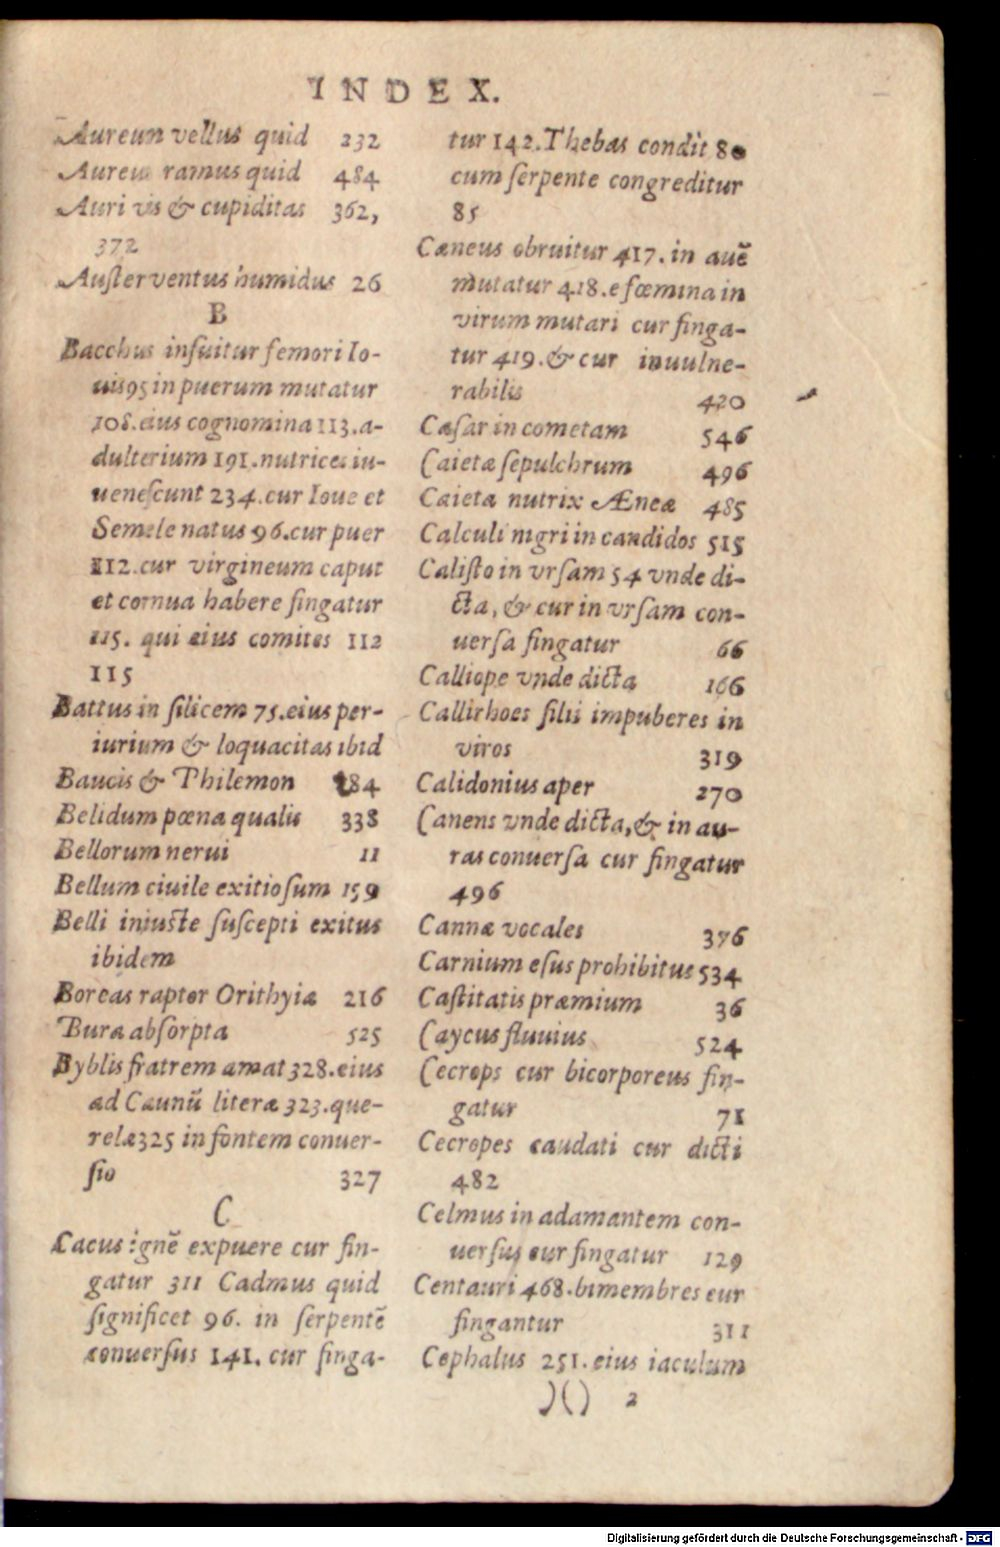 INDEX.
Aureum vellus quid 232
Aureus ramus quid 484
Auri vis & cupiditas 362,
372
Auſter ventus humidus 26
B
Bacchus inſuitur femori Io-
uis 95 in puerum mutatur
108. eius cognomina 113. a-
dulterium 191. nutrices iu-
ueneſcunt 234. cur Ioue et
Semele natus 96. cur puer
112. cur virgineum caput
et cornua habere fingatur
115. qui eius comites 112
115
Battus in ſilicem 75. eius per-
iurium & loquacitas ibid
Baucis & Philemon 284
Belidum pœna qualis 338
Bellorum nerui 11
Bellum ciuile exitioſum 159
Belli iniuſte ſuſcepti exitus
ibidem
Boreas raptor Orithyiæ 216
Bura abſorpta 525
Byblis fratrem amat 328. eius
ad Caunū literæ 323. que-
relæ 325 in fontem conuer-
ſio 327
C
Cacus ignē expuere cur fin-
gatur 311 Cadmus quid
ſignificet 96. in ſerpentē
conuerſus 141. cur finga-
tur 142. Thebas condit 80
cum ſerpente congreditur
85
Cæneus obruitur 417. in auē
mutatur 418. e fœmina in
virum mutari cur finga-
tur 419. & cur inuulne-
rabilis 420
Cæſar in cometam 546
Caietæ ſepulchrum 496
Caieta nutrix Æneæ 485
Calculi nigri in candidos 515
Caliſto in vrſam 54 vnde di-
cta, & cur in vrſam con-
uerſa fingatur 66
Calliope vnde dicta 166
Callirhoes filii impuberes in
viros 319
Calidonius aper 270
Canens vnde dicta, & in au-
ras conuerſa cur fingatur
496
Cannæ vocales 376
Carnium eſus prohibitus 534
Caſtitatis præmium 36
Caycus fluuius 524
Cecrops cur bicorporeus fin-
gatur 71
Cecropes caudati cur dicti
482
Celmus in adamantem con-
uerſus cur fingatur 129
Centauri 468. bimembres cur
fingantur 311
Cephalus 251. eius iaculum
)() 2
Digitalisierung gefördert durch die Deutsche Forschungsgemeinschaft - DFG